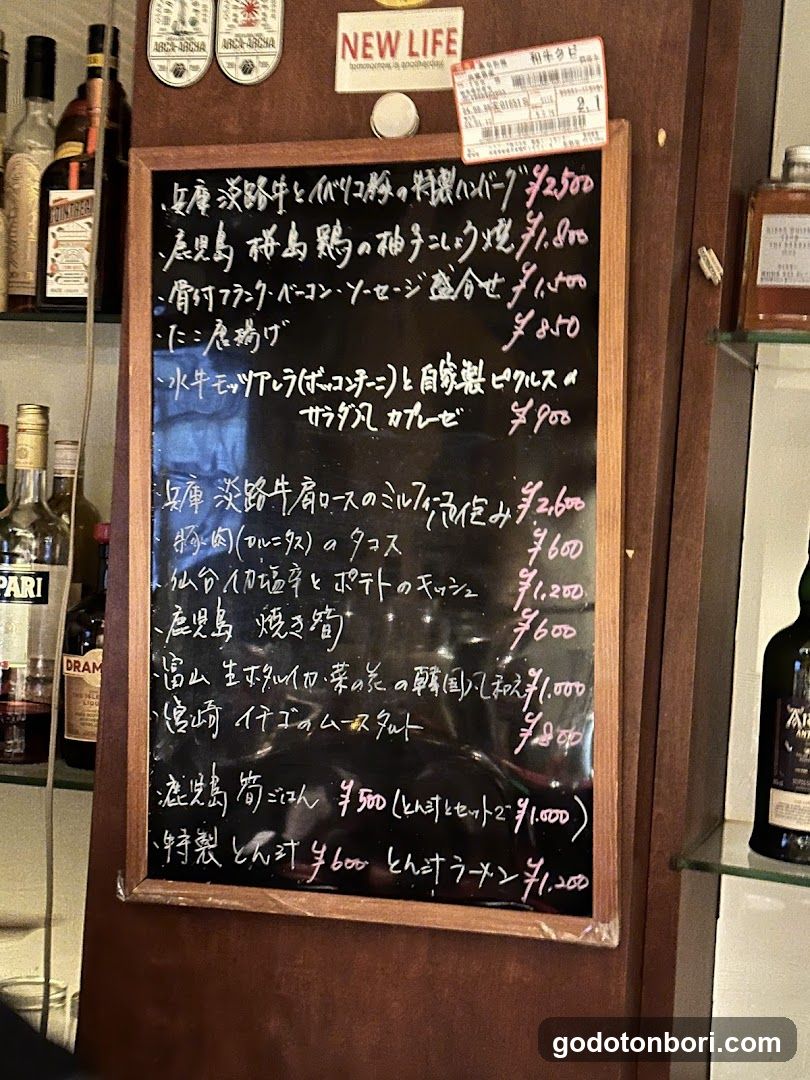 ARCA-ARCHA ARCA-ARCHA
NEW LIFE
tomorrow is another day
和牛クビ
2.1
COINTREAU
・兵庫 淡路牛とイベリコ豚の特製ハンバーグ ¥2,500
・鹿児島 桜島鶏の柚子こしょう焼 ¥1,800
・骨付フランク・ベーコン・ソーセージ盛合せ ¥1,500
・たこ唐揚げ ¥850
・水牛モッツアレラ(ボッコンチーニ)と自家製ピクルスの
サラダ風 カプレーゼ ¥900
・兵庫 淡路牛肩ロースのミルフィーユ仕込み ¥2,600
・豚肉(カルニタス)のタコス ¥600
・仙台イカ塩辛とポテトのキッシュ ¥1,200
・鹿児島 焼き筍 ¥600
・富山 生ホタルイカ・菜の花の韓国のり和え ¥1,000
・宮崎 イチゴのムースタルト ¥800
・鹿児島 筍ごはん ¥500 (とん汁とセットで ¥1,000)
・特製 とん汁 ¥600 とん汁ラーメン ¥1,200
PARI
DRAM
godotonbori.com